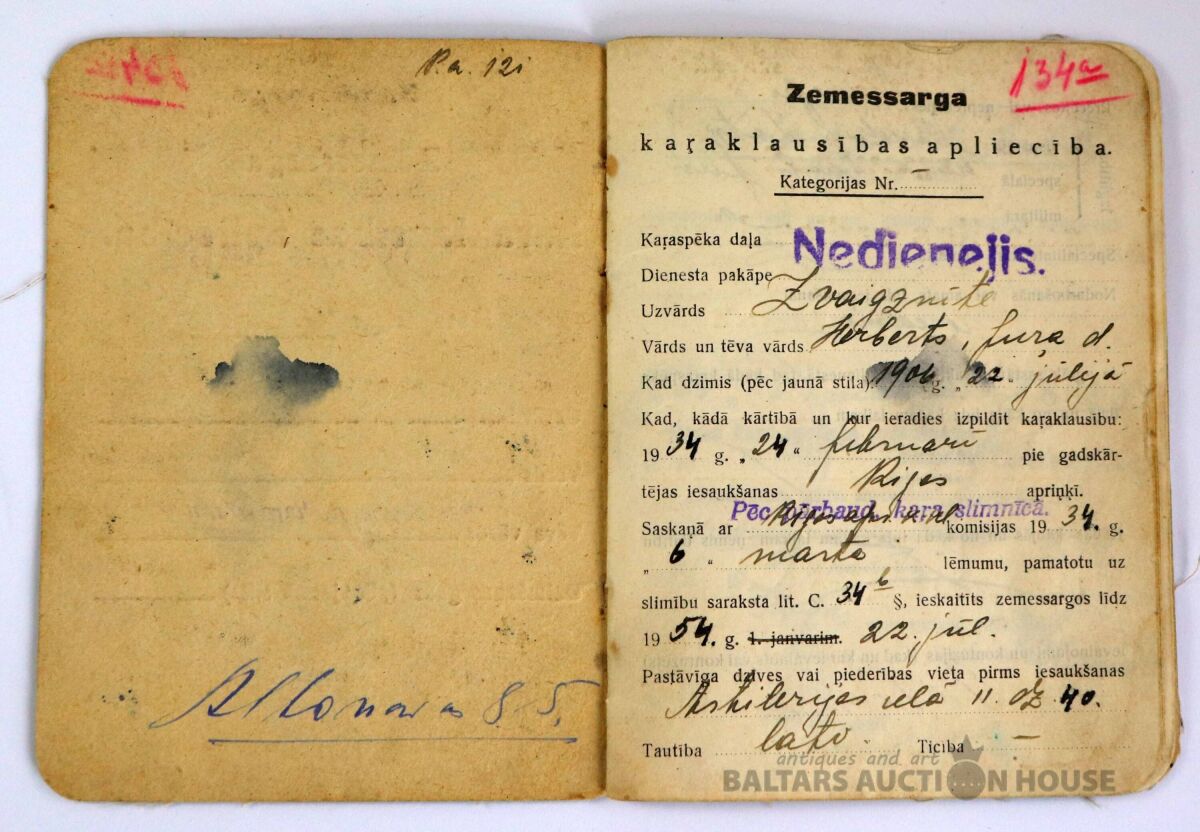 P.a. 121
Altonavas 85.
134a
Zemessarga
kaŗaklausības apliecība.
Kategorijas Nr. –
Kaŗaspēka daļa
Nedieneļis.
Dienesta pakāpe
Uzvārds Zvaigznīte
Vārds un tēva vārds Herberts, Jura d.
Kad dzimis (pēc jaunā stila): 1906 g. „22" jūlijā
Kad, kādā kārtībā un kur ieradies izpildīt kaŗaklausību:
1934 g. „24" februarī pie gadskār-
tējas iesaukšanas Rīgas apriņķī.
Pēc pārbaud. kara slimnīcā.
Saskaņā ar Rīgas komisijas 1934. g.
„6" marta lēmumu, pamatotu uz
slimību saraksta lit. C. 34 b §, ieskaitīts zemessargos līdz
1954. g. 1. janvarim. 22. jūl.
Pastāvīga dzīves vai piederības vieta pirms iesaukšanas
Artilerijas ielā 11. dz 40.
Tautība latv. Ticība –
antiques and art
BALTARS AUCTION HOUSE